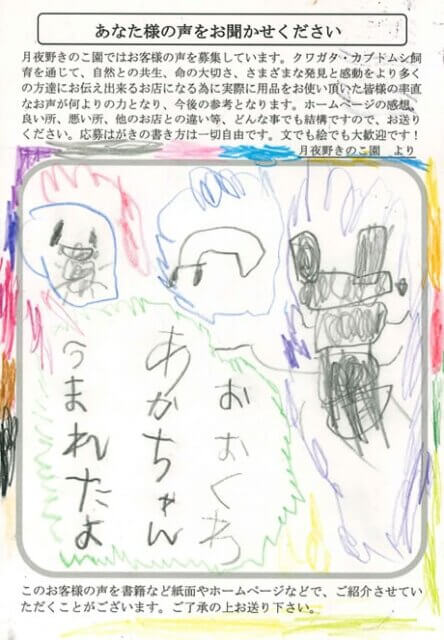 あなた様の声をお聞かせください
月夜野きのこ園ではお客様の声を募集しています。クワガタ・カブトムシ飼
育を通じて、自然との共生、命の大切さ、さまざまな発見と感動をより多く
の方達にお伝え出来るお店になる為に実際に用品をお使い頂いた皆様の率直
なお声が何よりの力となり、今後の参考となります。ホームページの感想、
良い所、悪い所、他のお店との違い等、どんな事でも結構ですので、お送り
ください。応募はがきの書き方は一切自由です。文でも絵でも大歓迎です！
月夜野きのこ園　より
おおくわ
あかちゃん
うまれたよ
このお客様の声を書籍など紙面やホームページなどで、ご紹介させてい
ただくことがございます。ご了承の上お送り下さい。